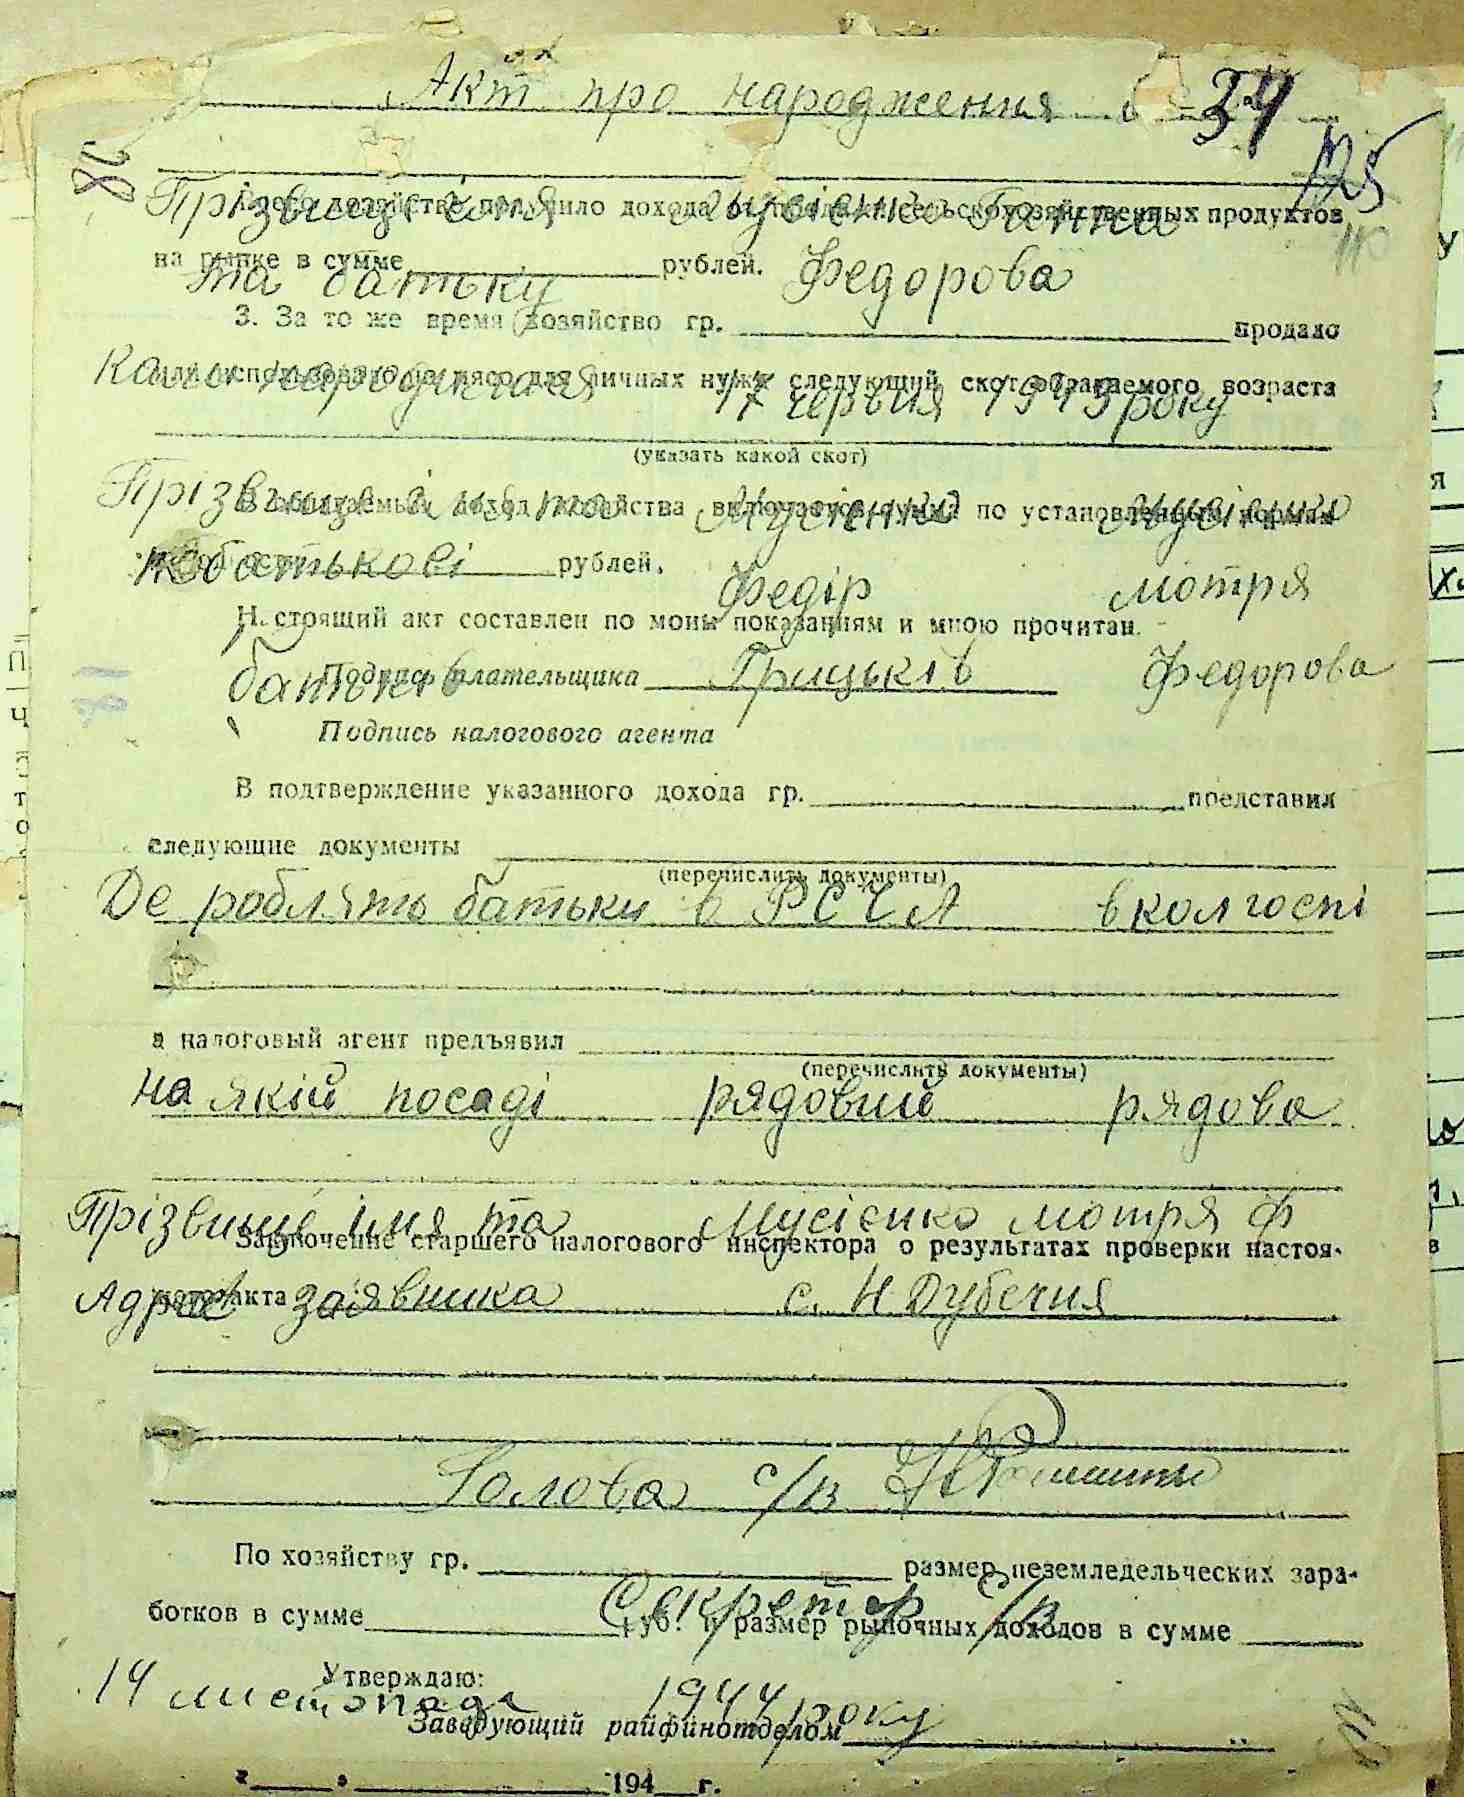 Акт про народження 34
125
Прізвище імя Мусієнко Ганна
Всего хозяйство получило дохода от продажи сельскохозяйственных продуктов
на рынке в сумме рублей.
та батьку Федорова
3. За то же время хозяйство гр. продало
или использовало на мясо для личных нужд следующий скот облагаемого возраста
коли народилася 17 червня 1943 року
(указать какой скот)
Прізвище імя та Мусієнко Мусієнко
В облагаемый доход хозяйства включается сумма по установленным нормам
побатькові Федір Мотря
рублей.
Настоящий акт составлен по моим показаниям и мною прочитан.
батьків Грицьків Федорова
Подпись плательщика
Подпись налогового агента
В подтверждение указанного дохода гр. представил
следующие документы
(перечислить документы)
Де роблять батьки в РСЧА в колгоспі
а налоговый агент предъявил
(перечислить документы)
на якій посаді рядовий рядова
Прізвище імя та Мусієнко Мотря Ф
Заключение старшего налогового инспектора о результатах проверки настоя-
щего акта
Адрес заявника с. Н Дубечня
Голова с/в
По хозяйству гр. размер неземледельческих зара-
ботков в сумме руб. и размер рыночных доходов в сумме
Секретар с/в
Утверждаю:
14 листопада 1944 року
Заведующий райфинотделом
194 г.